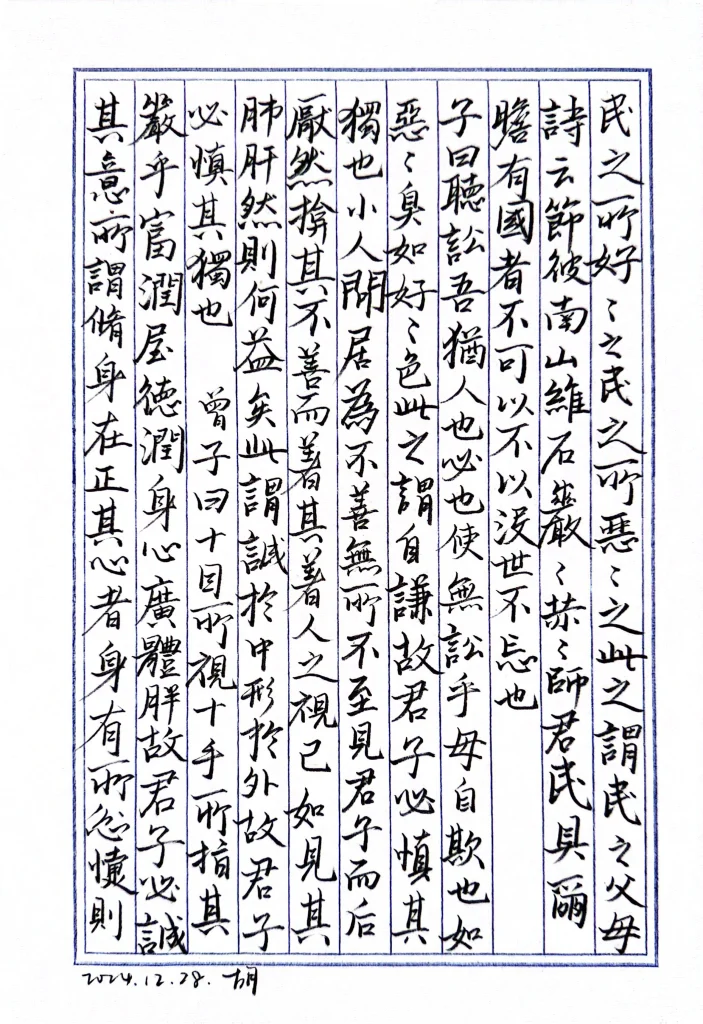 民之所好〻之民之所惡〻之此之謂民之父母
詩云節彼南山維石巖〻赫〻師君民具爾
瞻有國者不可以不以沒世不忘也
子曰聽訟吾猶人也必也使無訟乎毋自欺也如
惡〻臭如好〻色此之謂自謙故君子必慎其
獨也小人閒居為不善無所不至見君子而后
厭然揜其不善而著其著人之視己如見其
肺肝然則何益矣此謂誠於中形於外故君子
必慎其獨也 曾子曰十目所視十手所指其
嚴乎富潤屋德潤身心廣體胖故君子必誠
其意所謂脩身在正其心者身有所忿懥則
2024.12.28. 胡